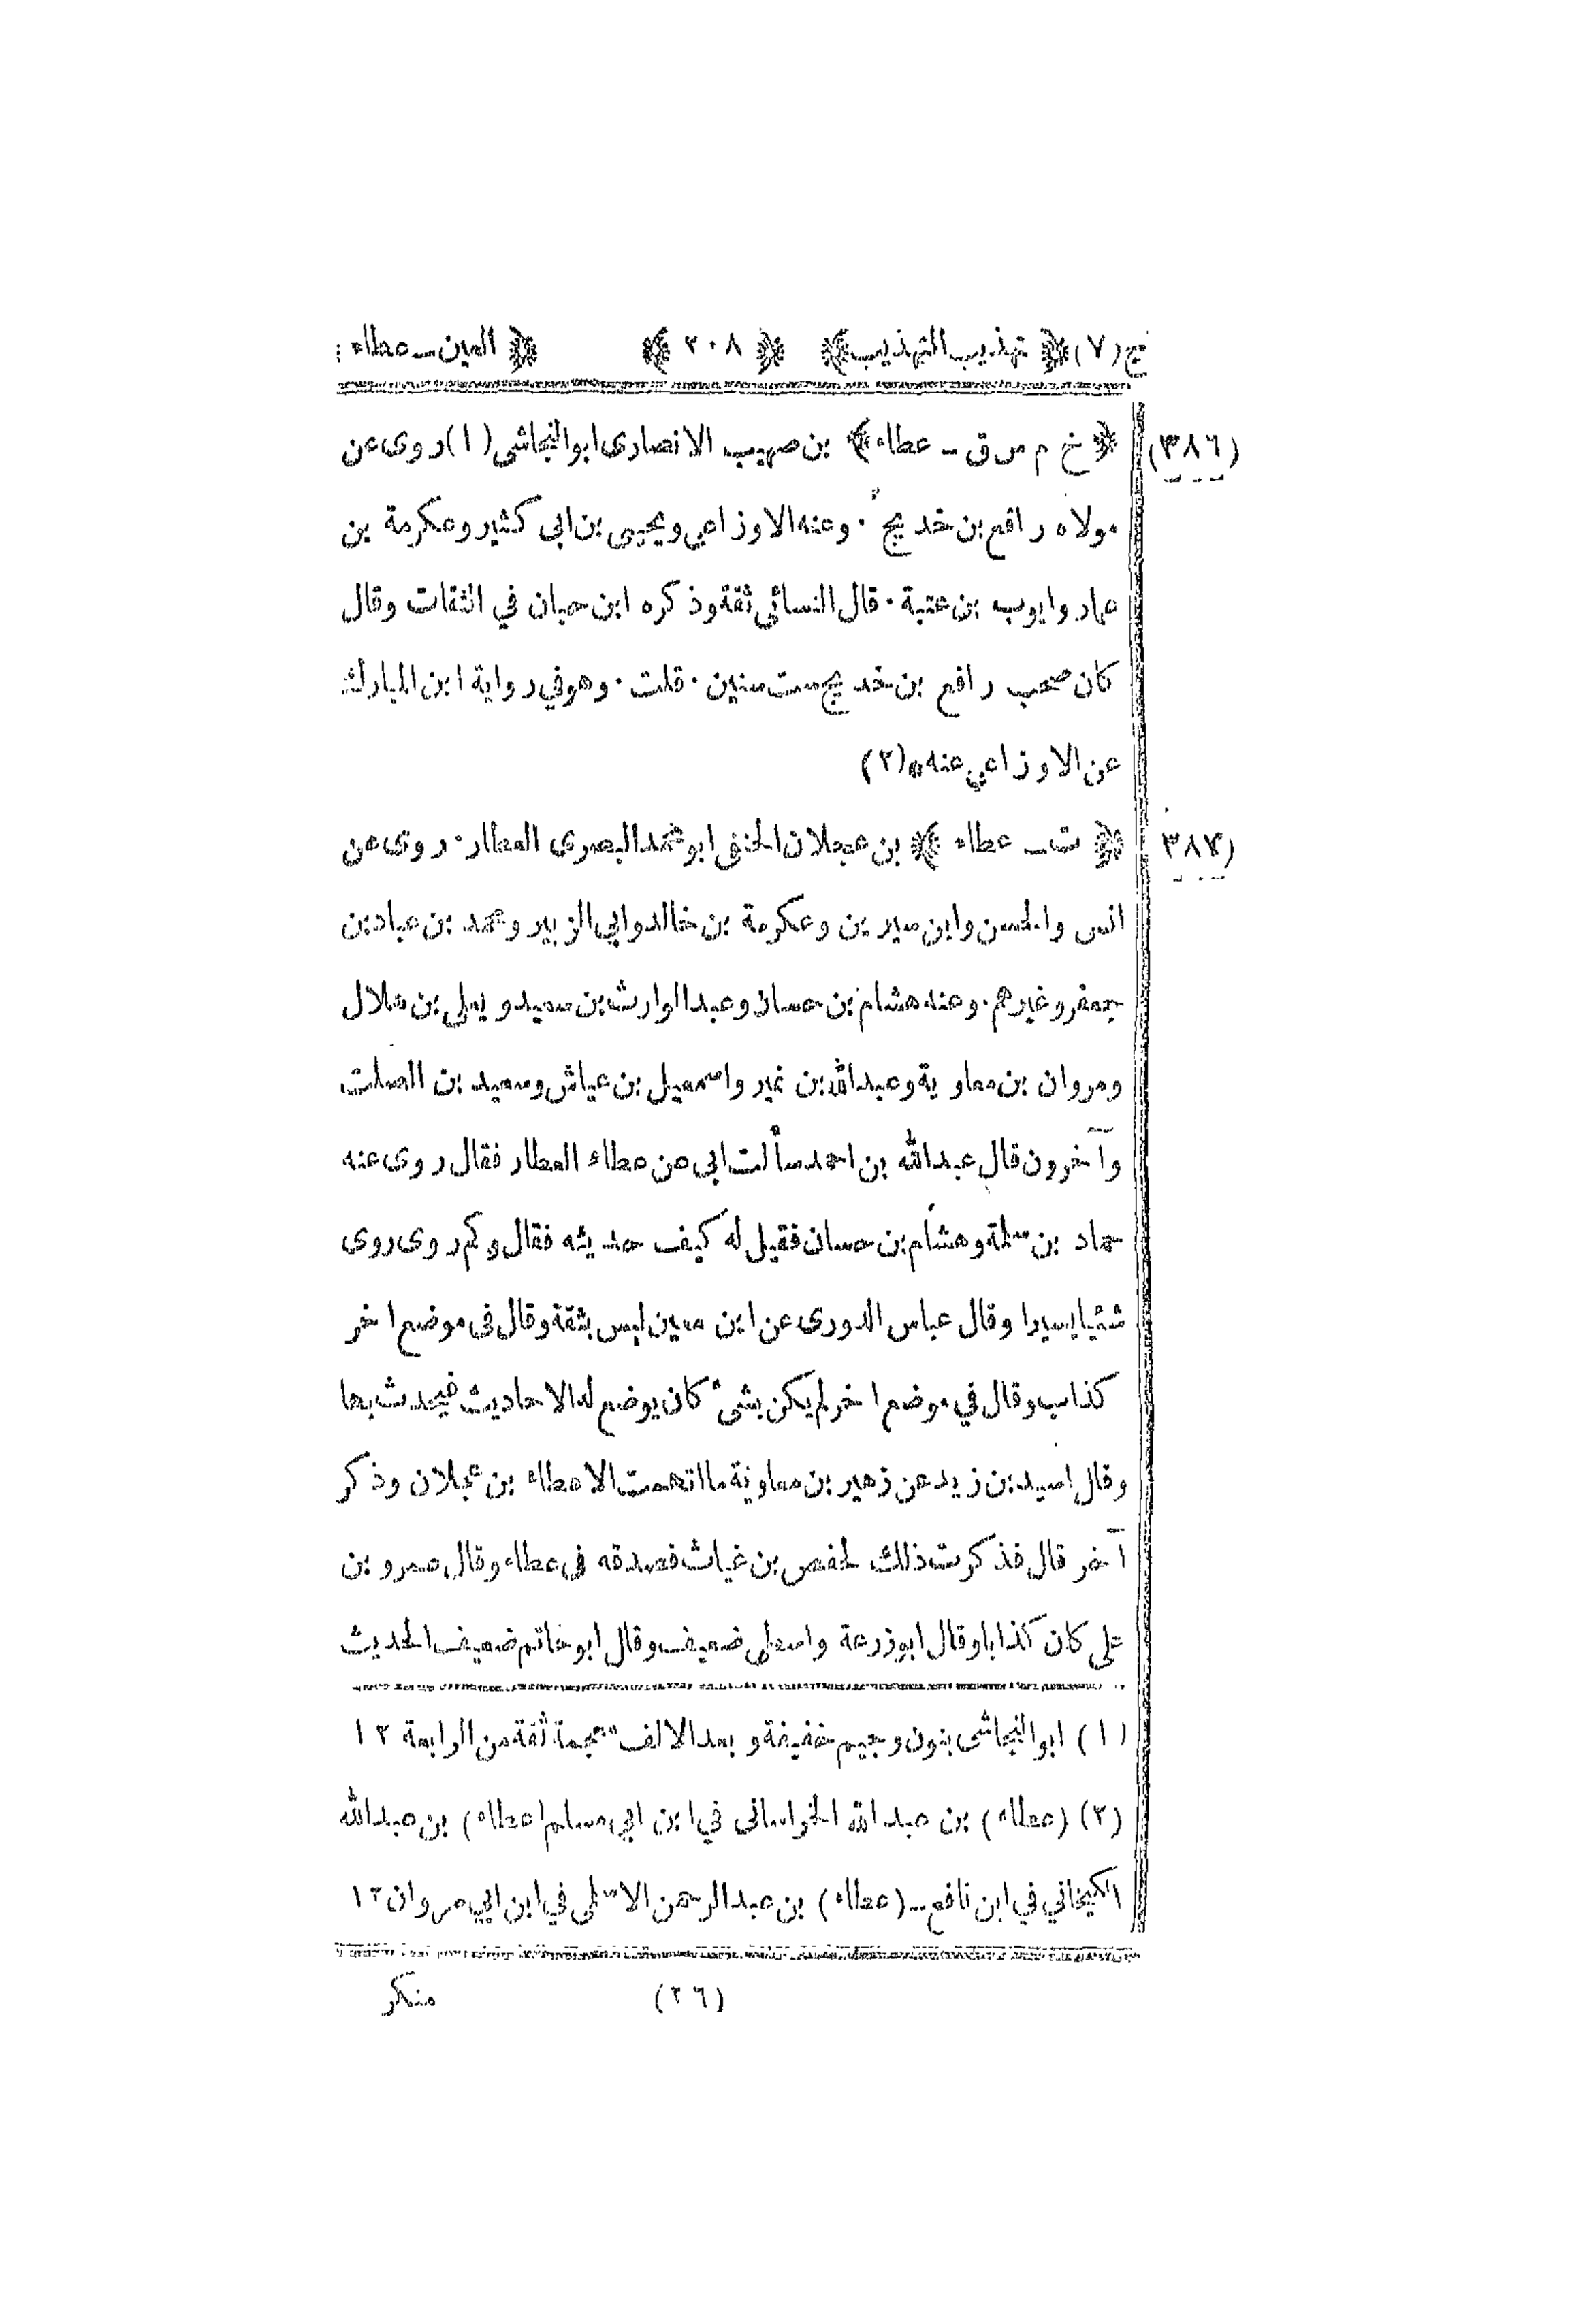 ج (٧) ﴿ تهذيب التهذيب ﴾ ﴿ ٢٠٨ ﴾ ﴿ العين ــ عطاء
(٣٨٦) ﴿ خ م س ق ــ عطاء ﴾ بن صهيب الانصارى ابوالنجاشى (١) روى عن
مولاه رافع بن خديج · وعنه الاوزاعي ويحيى بن ابى كثير وعكرمة بن
عمار وايوب بن عتبة · قال النسائي ثقة وذكره ابن حبان في الثقات وقال
كان صحب رافع بن خديج ست سنين · قلت · وهو في رواية ابن المبارك
عن الاوزاعي عنه * (٢)
٣٨٧) ﴿ ت ــ عطاء ﴾ بن عجلان الحنفى ابو محمد البصرى العطار · روى عن
انس والحسن وابن سيرين وعكرمة بن خالد وابي الزبير ومحمد بن عباد بن
جعفر وغيرهم · وعنه هشام بن حسان وعبدالوارث بن سعيد ويعلى بن هلال
ومروان بن معاوية وعبدالله بن نمير واسمعيل بن عياش وسعيد بن الصلت
وآخرون قال عبدالله بن احمد سألت ابى عن عطاء العطار فقال روى عنه
حماد بن سلمة وهشام بن حسان فقيل له كيف حديثه فقال وكم روى روى
شئيا يسيرا وقال عباس الدورى عن ابن معين ليس بثقة وقال فى موضع اخر
كذاب وقال في موضع اخر لم يكن بشئ كان يوضع له الاحاديث فيحدث بها
وقال اسيد بن زيد عن زهير بن معاوية ما اتهمت الا عطاء بن عجلان وذكر
آخر قال فذكرت ذلك لحفص بن غياث فصدقه فى عطاء وقال عمرو بن
على كان كذابا وقال ابو زرعة ضعيف وقال ابو حاتم ضعيف الحديث
(١) ابوالنجاشى بنون وجيم خفيفة وبعد الالف معجمة ثقة من الرابعة ١٢
(٢) (عطاء) بن عبدالله الخراسانى في ابن ابي مسلم (عطاء) بن عبدالله
الكيخاني في ابن نافع ــ (عطاء) بن عبدالرحمن الاسلمى في ابن ابي مروان ١٢
(٢٦) منكر